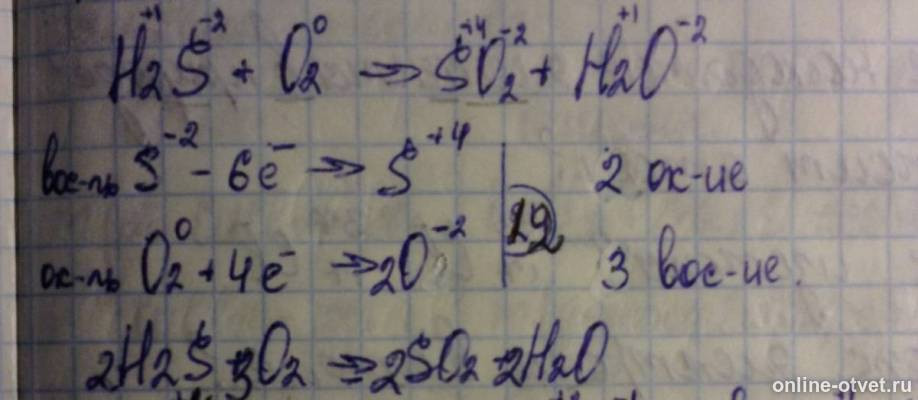 H₂⁺¹S⁻² + O₂⁰ → S⁺⁴O₂⁻² + H₂⁺¹O⁻²
вос-ль S⁻² - 6e⁻ → S⁺⁴ | 2 ок-ие
12
ок-ль O₂⁰ + 4e⁻ → 2O⁻² | 3 вос-ие.
2H₂S + 3O₂ → 2SO₂ + 2H₂O
online-otvet.ru